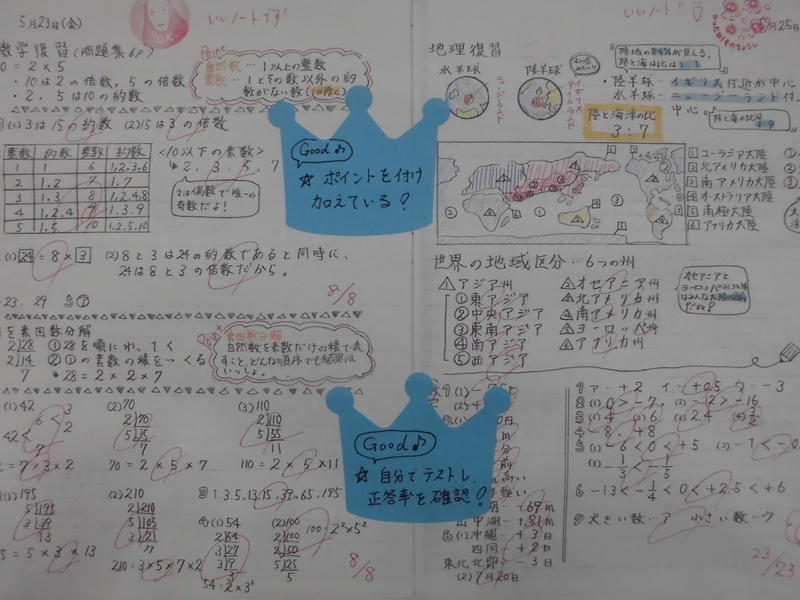 5月23日(金)
いいノートです
OK
数学復習(問題集6P)
10 = 2×5
・10は2の倍数,5の倍数
・2,5は10の約数
Point
自然数…1以上の整数
素数…1とその数以外の約
数がない数(1は除く)
(1)3は15の約数 (2)15は3の倍数
整数 約数 整数 約数
1 1 6 1,2,3,6
2 1,2 7 1,7
3 1,3 8 1,2,4,8
4 1,2,4 9 1,3,9
5 1,5 10 1,2,5,10
<10以下の素数>
↳2,3,5,7
2は偶数で唯一の
素数だよ!
(1)24=8×3
(2)8と3は24の約数であると同時に、
24は8と3の倍数だから。
23, 29
8/8
素因数分解
2)28 ①28を順にわってく
2)14 ②①の素数の積をつくる
7 ↳28=2×2×7
Point
素因数分解
自然数を素数だけの積で表
すこと。どんな順序でも結果は
いっしょ。
(1)42 (2)70 (3)110
42< 6< 3 2
7
2)70
5)35
7
2)110
5)55
11
=7×3×2 70=2×5×7 110=2×5×11
(1)195 (2)210
5)195
3)39
13
2)210
5)105
3)21
7
=5×3×13 210=3×5×7×2
1,3,5,13,15,39,65,195
(1)54 (2)100
2)54
3)27
3)9
3
2)100
2)50
5)25
5
100=2²×5²
54=2×3³
8/8
Good♪
☆ポイントを付け
加えている!
Good♪
☆自分でテストし、
正答率を確認!
いいノート
25日
地理復習
水半球 陸半球
ニュージーランド
イギリス
アイルランド
・陸半球…イギリス付近が中心
水半球…ニュージーランド付
中心
陸と海は比は1:1
陸と海洋の比
3:7
陸と海の比は1:9
1ユーラジア大陸
2北アメリカ大陸
3南アメリカ大陸
4オーストラリア大陸
5南極大陸
6アフリカ大陸
世界の地域区分…6つの州
1アジア州
①東アジア
②中央アジア
③東南アジア
④南アジア
⑤西アジア
オセアニア州
北アメリカ州
南アメリカ州
ヨーロッパ州
アフリカ州
オセアニアと
1 ア…+2 イ…+0.5 ウ…-3
2(1) 0>-7, (2)-12>-16
3(1)4 (2)6 (3)2.4 (4)3/2
4 -8, +8
5(1)-6<0<+5 (2)-7<-0.
(3)-1/3<-1/5
6 -13<-1/4<0<+2.5<+6
7 大きい数…ア 小さい数…ウ
+69m
山中湖…+81m
(1)沖縄…+3日
四国…+2日
東北北部…-3日
(2)7月20日
23/23